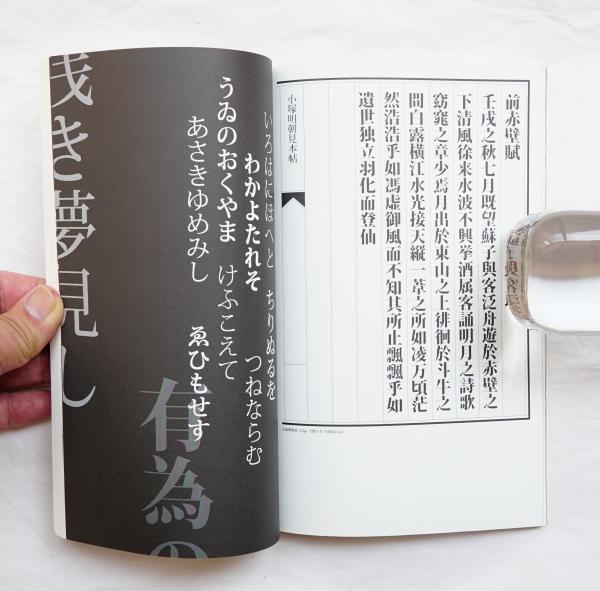 前赤壁賦
壬戌之秋七月既望蘇子與客泛舟遊於赤壁之
下清風徐来水波不興挙酒属客誦明月之詩歌
窈窕之章少焉月出於東山之上徘徊於斗牛之
間白露横江水光接天縦一葦之所如凌万頃茫
然浩浩乎如馮虚御風而不知其所止飄飄乎如
遺世独立羽化而登仙
小塚明朝見本帖
いろはにほへと ちりぬるを
わかよたれそ つねならむ
うゐのおくやま けふこえて
あさきゆめみし ゑひもせす
有為の
浅き夢見し